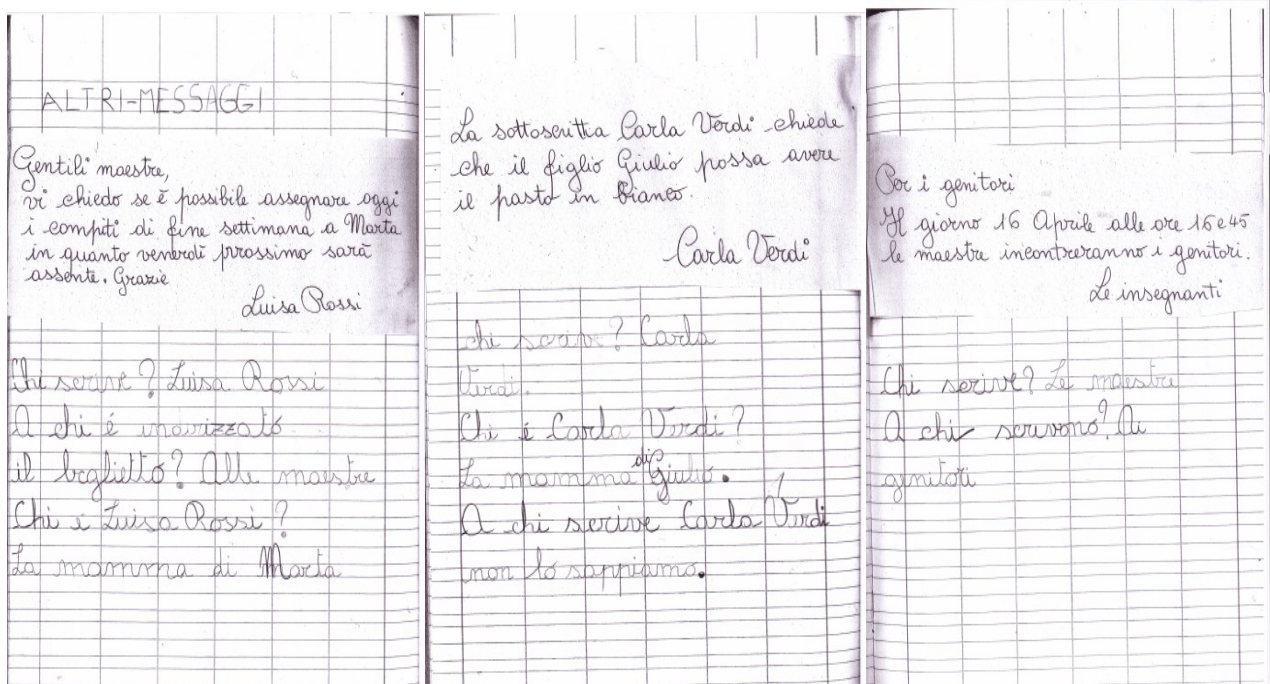 ALTRI-MESSAGGI
Gentili maestre,
vi chiedo se è possibile assegnare oggi
i compiti di fine settimana a Marta
in quanto venerdì prossimo sarà
assente. Grazie
Luisa Rossi
Chi scrive? Luisa Rossi
A chi é indirizzato
il biglietto? Alle maestre
Chi é Luisa Rossi?
La mamma di Marta
La sottoscritta Carla Verdi chiede
che il figlio Giulio possa avere
il pasto in bianco.
Carla Verdi
chi scrive? Carla
Verdi.
Chi é Carla Verdi?
La mamma di Giulio.
A chi scrive Carla Verdi?
non lo sappiamo.
Per i genitori
Il giorno 16 Aprile alle ore 16 e 45
le maestre incontreranno i genitori.
Le insegnanti
Chi scrive? Le maestre
A chi scrivono? Ai
genitori